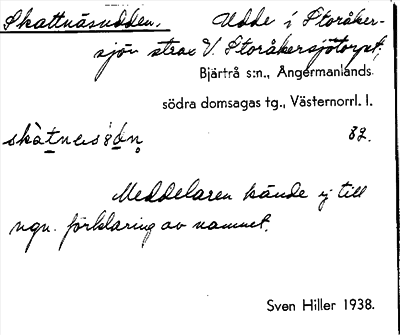 Skattnäsudden. Udde i Storåker-
sjön strax V. Storåkersjötorpet,
Bjärtrå s:n., Ångermanlands
södra domsagas tg., Västernorrl. l.
82.
Meddelaren kände ej till
ngn. förklaring av namnet.
Sven Hiller 1938.